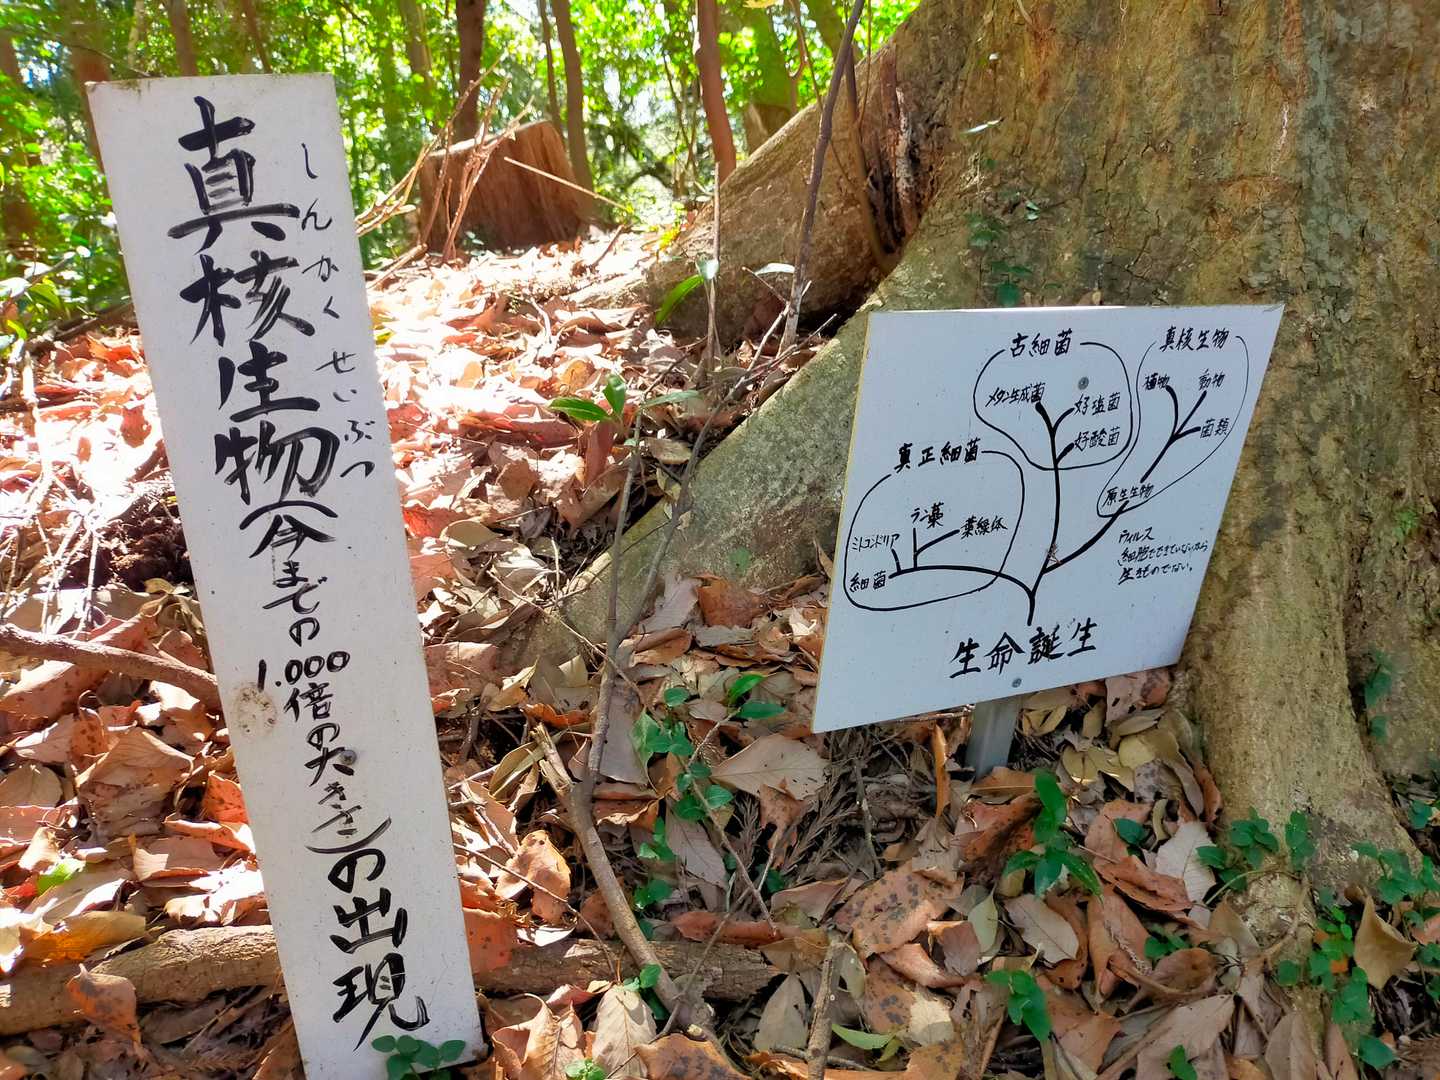 真核生物(今までの1.000倍の大きさ)の出現
しんかくせいぶつ
古細菌
メタン生成菌
好塩菌
好酸菌
真核生物
植物
動物
菌類
原生生物
真正細菌
ラン藻
葉緑体
ミトコンドリア
細菌
ウィルス
細胞でできていないから
生きものでない。
生命誕生